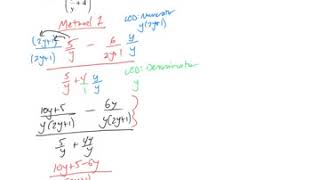 (y/y + 4)
Method 1
LCD: Numerator
y(2y+1)
(2y+1)/(2y+1) 5/y - 6/(2y+1) y/y
5/y + 4/1 y/y
LCD: Denominator
y
(10y+5)/(y(2y+1)) - 6y/(y(2y+1))
5/y + 4y/y
10y+5-6y